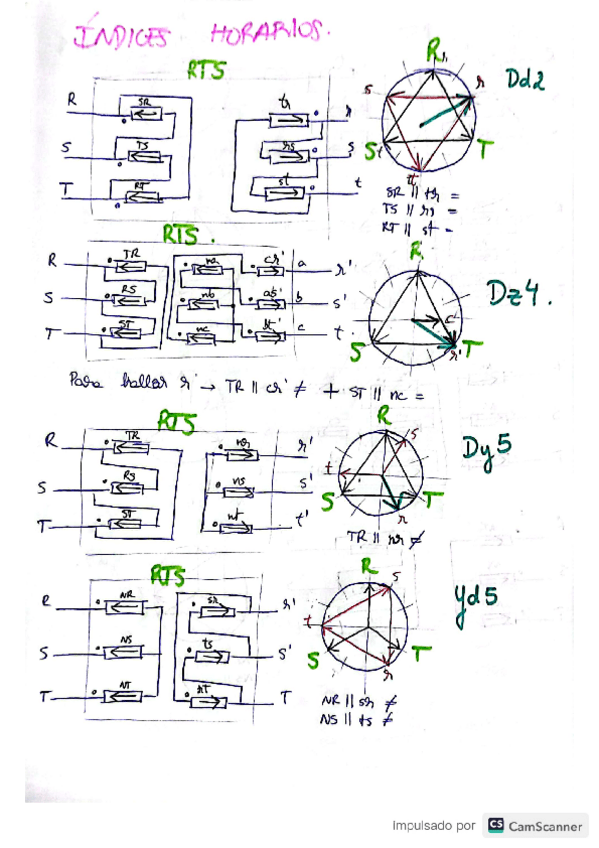 ÍNDICES HORARIOS.
RTS
R
SR
tr
r
S
TS
rs
s
T
RT
st
t
R
s
r
S
T
t
Dd2
SR || tr =
TS || rs =
RT || st =
RTS.
R
TR
na
cr'
a
r'
S
RS
nb
as'
b
s'
T
ST
nc
bt'
c
t'
R
c
S
r'
T
Dz4.
Para hallar r' → TR || cr' ≠ + ST || nc =
RTS
R
TR
nr
r'
S
RS
ns
s'
T
ST
nt
t'
R
s
t
S
T
r
Dy5
TR || nr ≠
RTS
R
NR
sr
r'
S
NS
ts
s'
T
NT
rt
T
R
s
t
S
T
r
Yd5
NR || sr ≠
NS || ts ≠
Impulsado por CS CamScanner